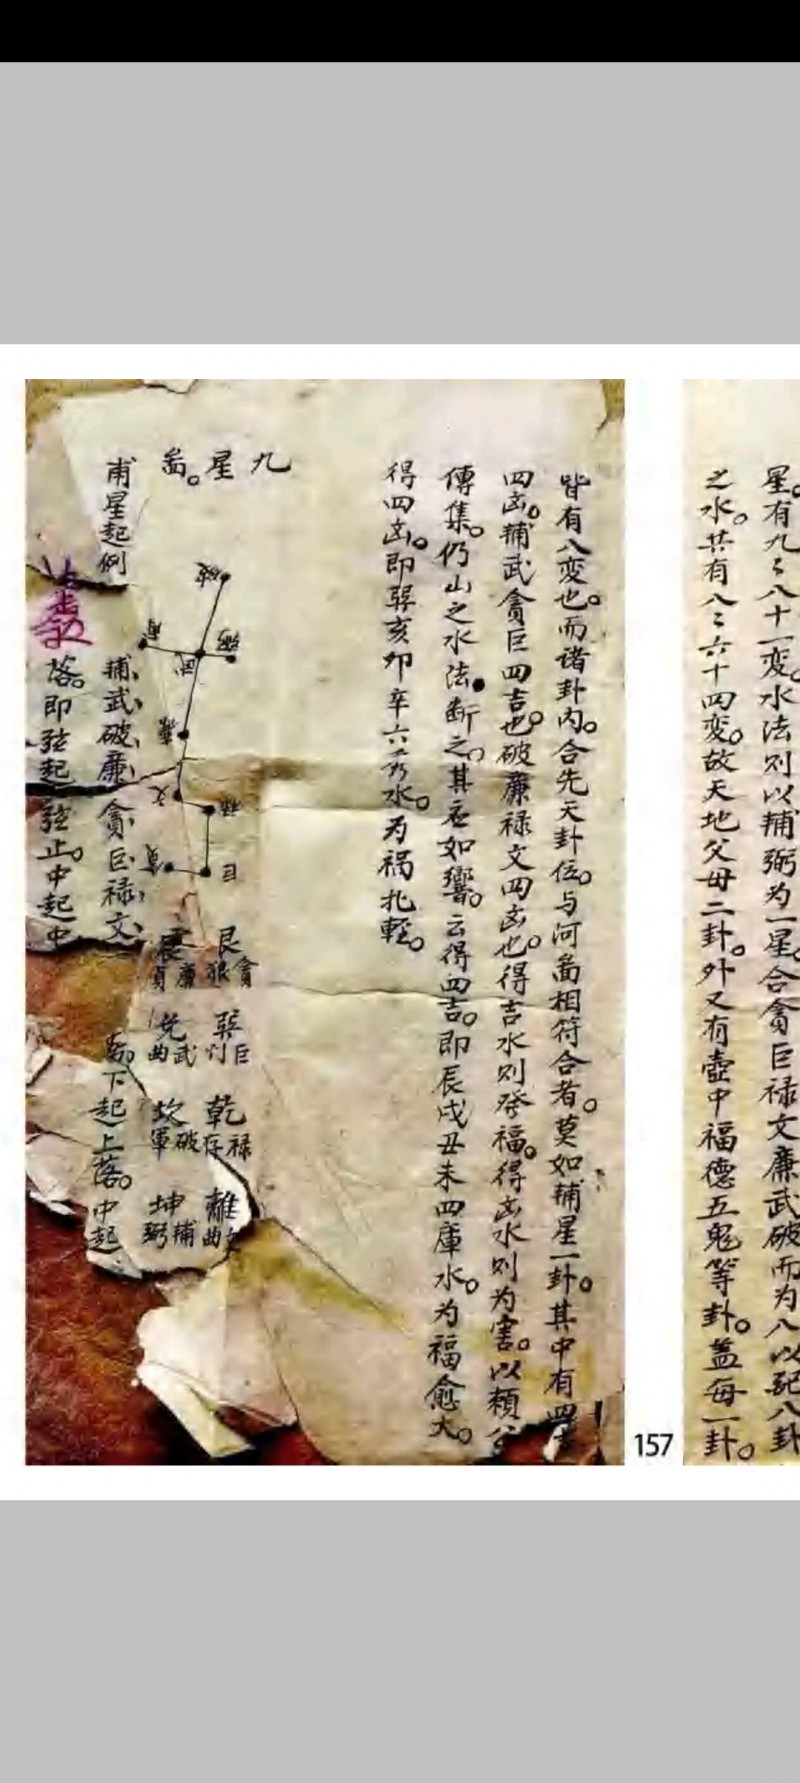 星。有九〻八十一变。水法则以辅弼为一星。合貪巨禄文廉武破而为八以配八卦
之水。共有八〻六十四变。故天地父母二卦。外又有壺中福德五鬼等卦。盖每一卦。
157
皆有八变也。而诸卦内。合先天卦位。与河啚相符合者。莫如辅星一卦。其中有四吉
四凶。辅武貪巨四吉也。破廉禄文四凶也。得吉水则發福。得凶水则为害。以頼公
傳集。仍山之水法断之。其应如響。云得四吉。即辰戌丑未四庫水。为福愈大。
得四凶。即巽亥卯辛六
水。为禍
輕。
九星啚。
破
弼
武
廉
文
禄
巨
貞
艮 巽 乾 離
貪狼 巨 禄存 曲
震 兑 坎 坤
廉貞 武曲 破軍 辅弼
甫星起例
辅武破廉貪巨禄文
下起上落。中起
落。即弦起弦止。中起中